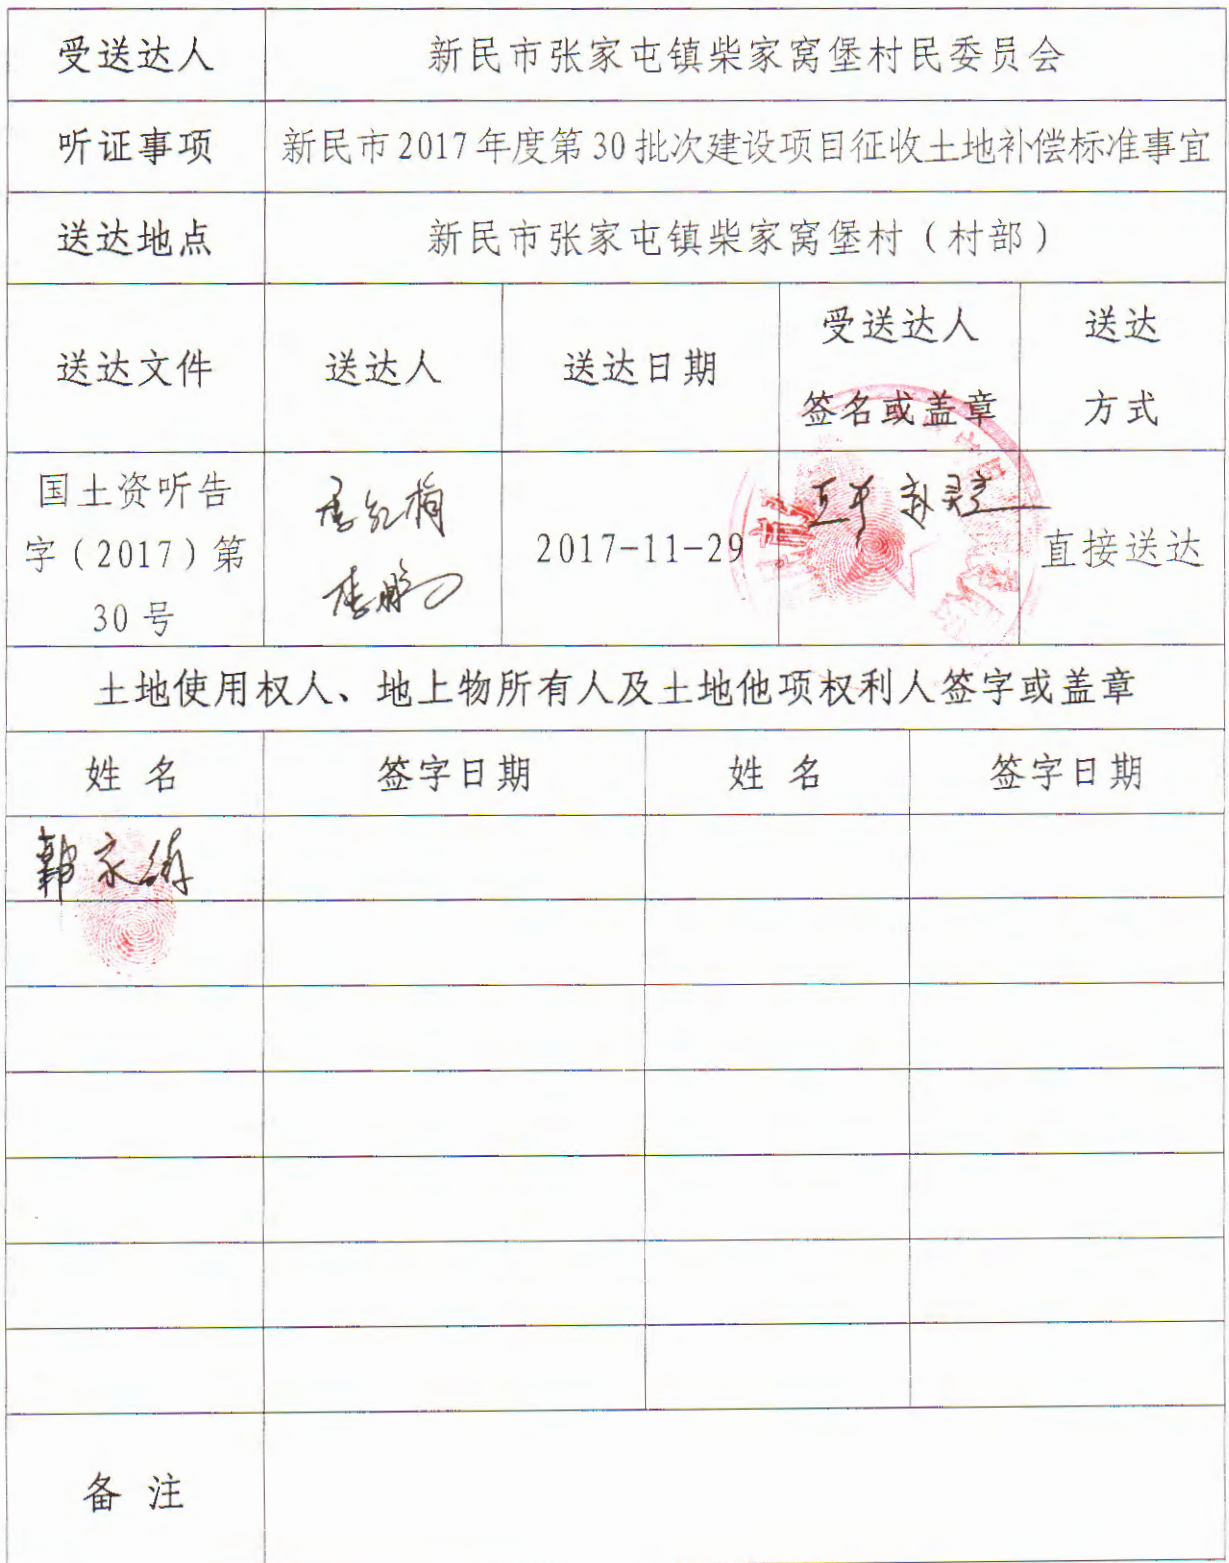 受送达人 新民市张家屯镇柴家窝堡村民委员会
听证事项 新民市2017年度第30批次建设项目征收土地补偿标准事宜
送达地点 新民市张家屯镇柴家窝堡村（村部）
送达文件 送达人 送达日期 受送达人 签名或盖章 送达 方式
国土资听告
字（2017）第
30号
2017-11-29
直接送达
土地使用权人、地上物所有人及土地他项权利人签字或盖章
姓 名 签字日期 姓 名 签字日期
备 注